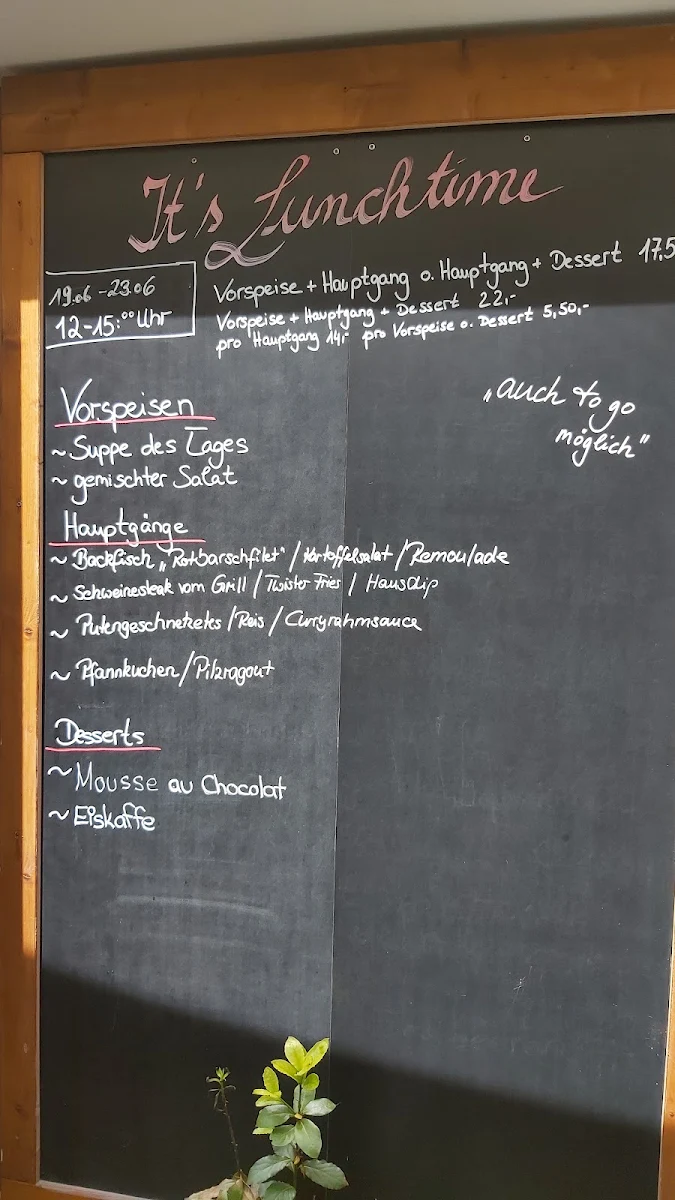 It's Lunchtime
19.06 - 23.06
12-15:00 Uhr
Vorspeise + Hauptgang o. Hauptgang + Dessert 17,5
Vorspeise + Hauptgang + Dessert 22,-
pro Hauptgang 14,- pro Vorspeise o. Dessert 5,50,-
„auch to go
möglich"
Vorspeisen
~ Suppe des Tages
~ gemischter Salat
Hauptgänge
~ Backfisch „Rotbarschfilet" / Kartoffelsalat / Remoulade
~ Schweinesteak vom Grill / Twister Fries / Hausdip
~ Putengeschnetzeltes / Reis / Curryrahmsauce
~ Pfannkuchen / Pilzragout
Desserts
~ Mousse au Chocolat
~ Eiskaffe